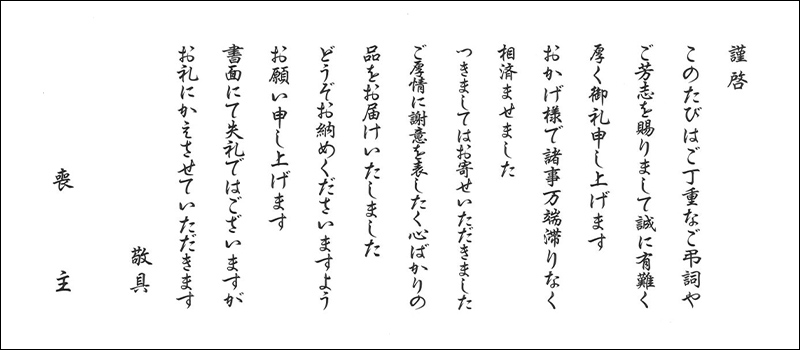 謹啓
このたびはご丁重なご弔詞や
ご芳志を賜りまして誠に有難く
厚く御礼申し上げます
おかげ様で諸事万端滞りなく
相済ませました
つきましてはお寄せいただきました
ご厚情に謝意を表したく心ばかりの
品をお届けいたしました
どうぞお納めくださいますよう
お願い申し上げます
書面にて失礼ではございますが
お礼にかえさせていただきます
敬具
喪主